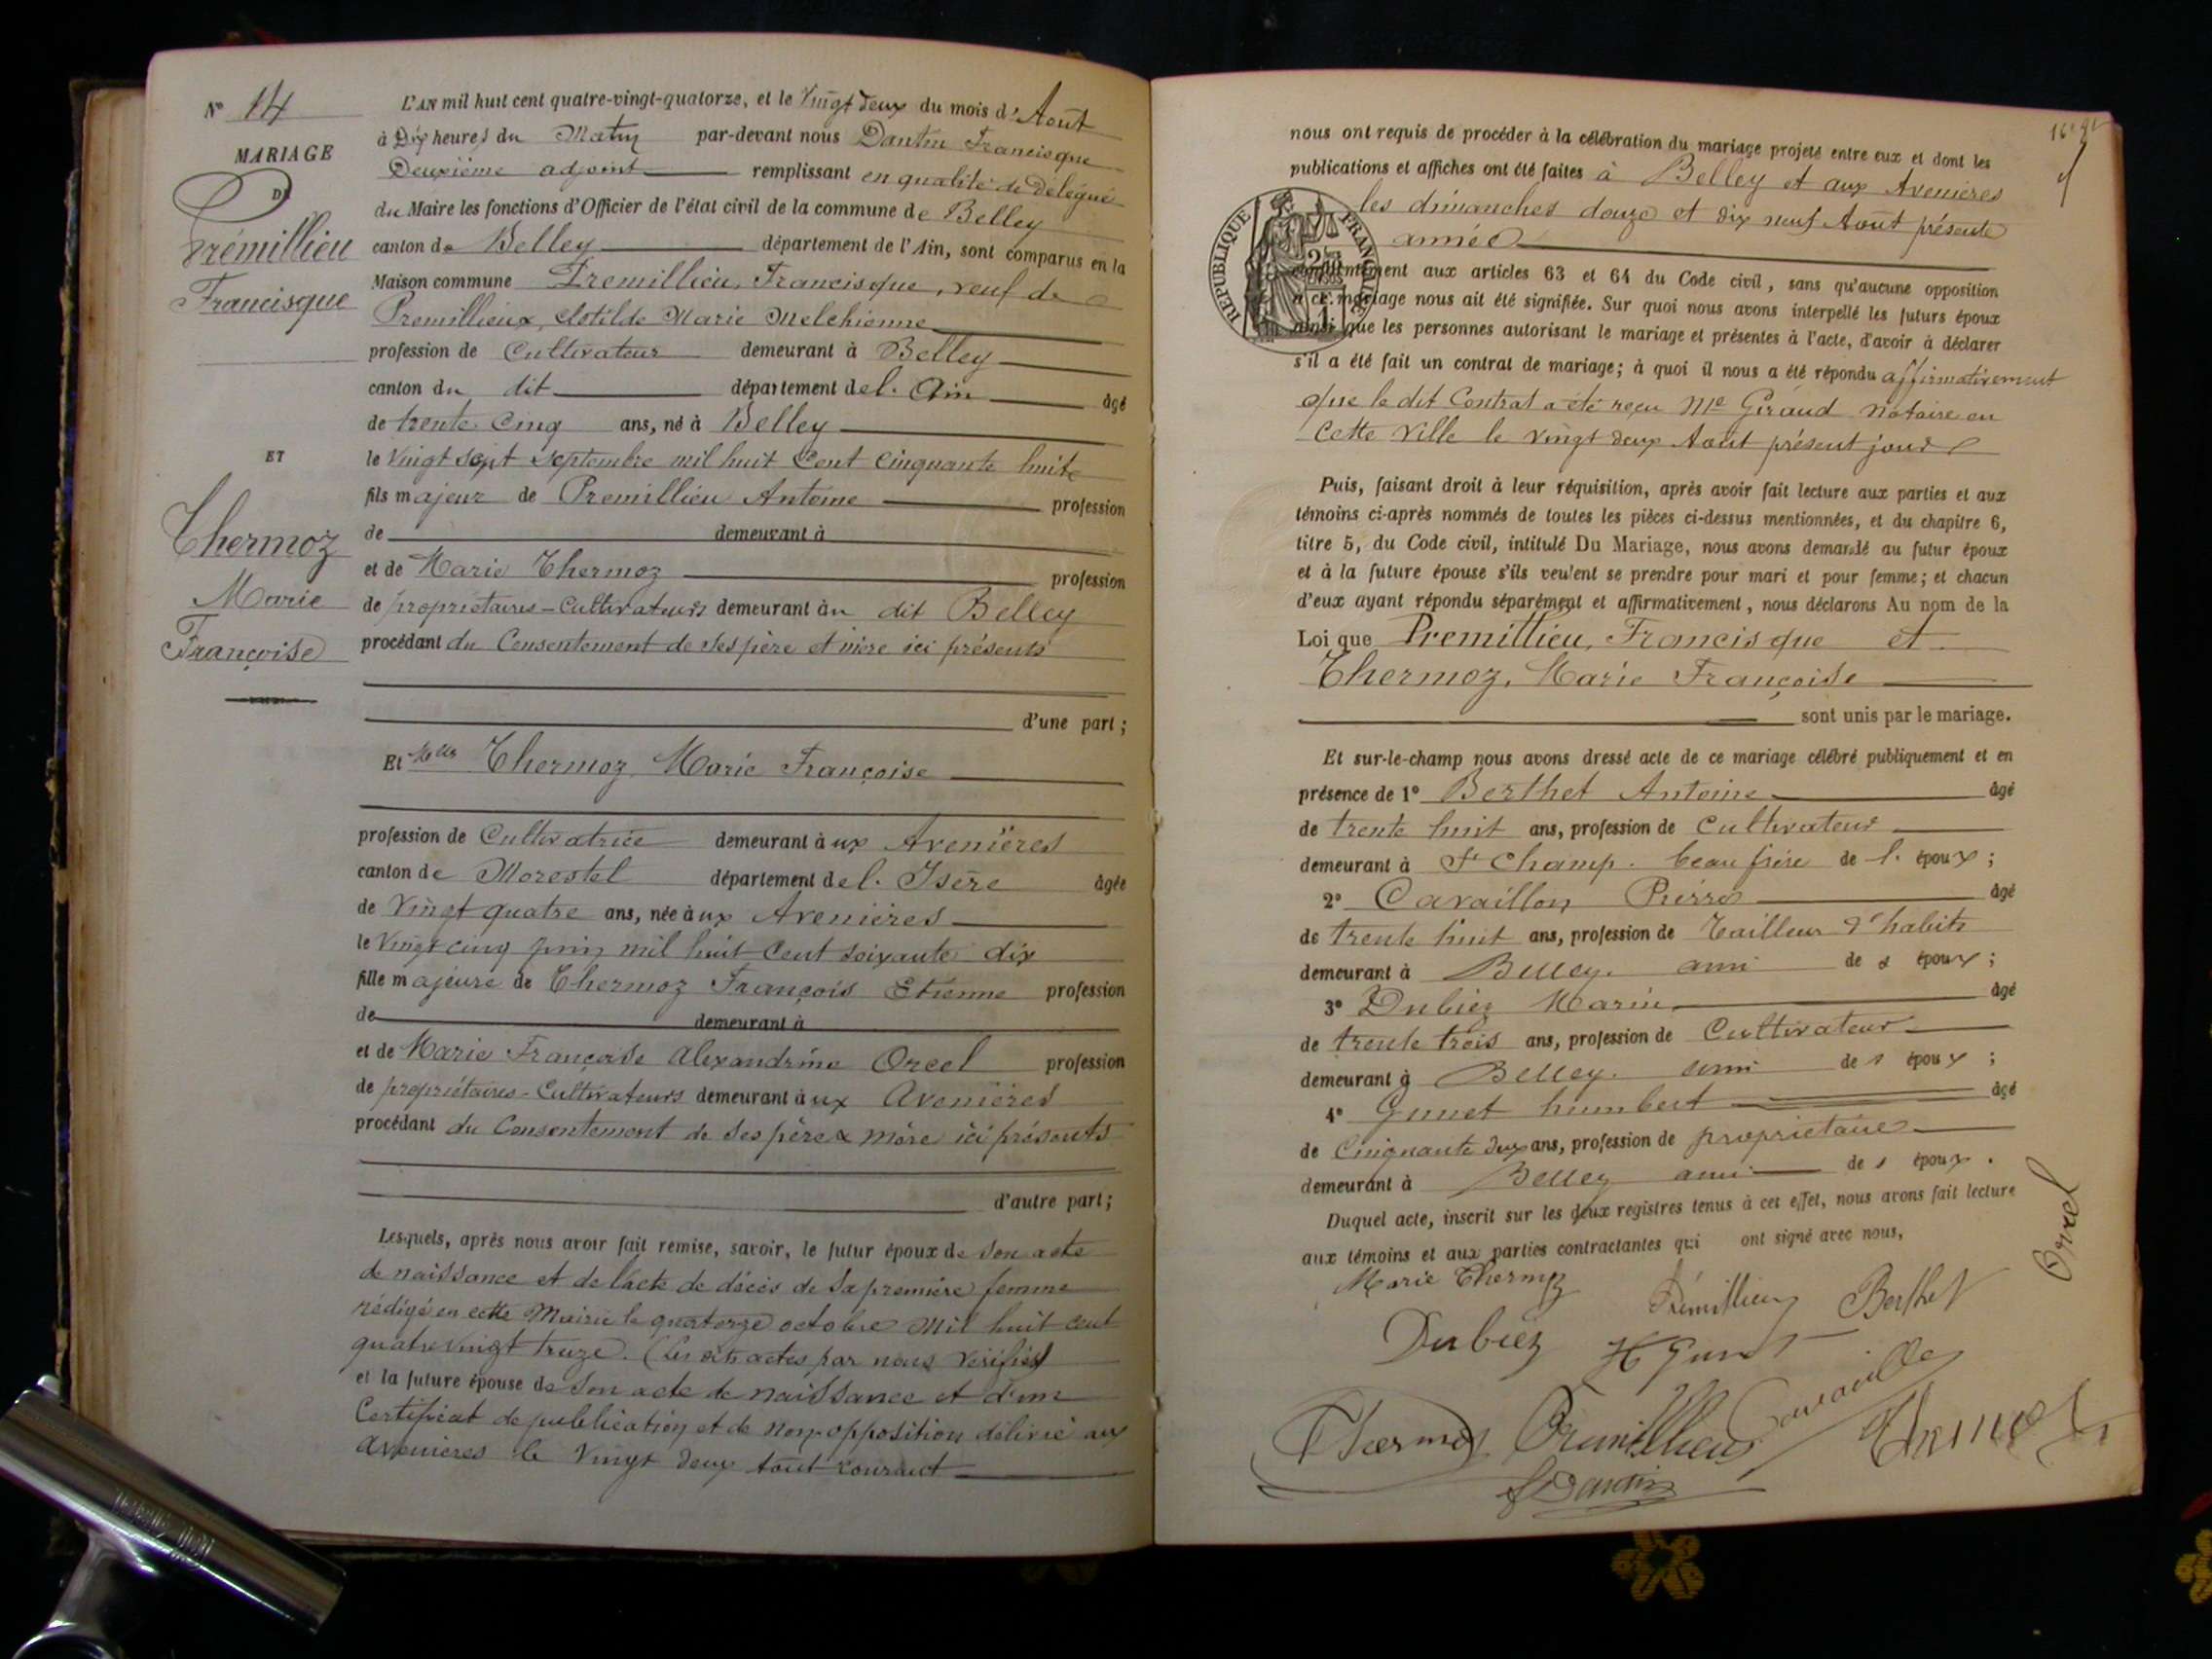 N° 14
MARIAGE
DE
Prémillieu
Francisque
ET
Thermoz
Marie
Françoise
L'AN mil huit cent quatre-vingt-quatorze, et le Vingt Deux du mois d'Août
à Dix heures du Matin par-devant nous Dantin Francisque
Deuxième adjoint remplissant en qualité de délégué
du Maire les fonctions d'Officier de l'état civil de la commune de Belley
canton de Belley département de l'Ain, sont comparus en la
Maison commune Premillieu, Francisque, veuf de
Premillieux, Clotilde Marie Melchionne
profession de Cultivateur demeurant à Belley
canton du dit département de l'Ain âgé
de trente cinq ans, né à Belley
le Vingt sept Septembre mil huit Cent Cinquante huite
fils majeur de Premillieu Antoine profession
de demeurant à
et de Marie Thermoz profession
de propriétaires-Cultivateurs demeurant àu dit Belley
procédant du Consentement de ses père et mère ici présents
d'une part ;
Et Melle Thermoz Marie Françoise
profession de Cultivatrice demeurant à ux Avenières
canton de Morestel département de l'Isère âgée
de Vingt quatre ans, née à ux Avenières
le Vingt cinq juin mil huit Cent soixante dix
fille majeure de Thermoz François Etienne profession
de demeurant à
et de Marie Françoise Alexandrine Orcel profession
de propriétaires-Cultivateurs demeurant à ux Avenières
procédant du Consentement de ses père & mère ici présents
d'autre part ;
Lesquels, après nous avoir fait remise, savoir, le futur époux de son acte
de naissance et de l'acte de décès de sa première femme
rédigé en cette Mairie le quatorze octobre mil huit cent
quatre vingt treize. (les dits actes par nous vérifiés)
et la future épouse de son acte de naissance et d'un
Certificat de publication et de non-opposition délivré aux
Avenières le Vingt deux Août courant
nous ont requis de procéder à la célébration du mariage projeté entre eux et dont les
publications et affiches ont été faites à Belley et aux Avenières
les dimanches douze et dix neuf Août présente
année
REPUBLIQUE FRANÇAISE
conformément aux articles 63 et 64 du Code civil, sans qu'aucune opposition
à ce mariage nous ait été signifiée. Sur quoi nous avons interpellé les futurs époux
ainsi que les personnes autorisant le mariage et présentes à l'acte, d'avoir à déclarer
s'il a été fait un contrat de mariage ; à quoi il nous a été répondu affirmativement
que le dit Contrat a été reçu Me Giraud Notaire en
Cette Ville le Vingt deux Août présent jour
Puis, faisant droit à leur réquisition, après avoir fait lecture aux parties et aux
témoins ci-après nommés de toutes les pièces ci-dessus mentionnées, et du chapitre 6,
titre 5, du Code civil, intitulé Du Mariage, nous avons demandé au futur époux
et à la future épouse s'ils veulent se prendre pour mari et pour femme ; et chacun
d'eux ayant répondu séparément et affirmativement, nous déclarons Au nom de la
Loi que Premillieu, Francisque et
Thermoz, Marie Françoise
sont unis par le mariage.
Et sur-le-champ nous avons dressé acte de ce mariage célébré publiquement et en
présence de 1° Berthet Antoine âgé
de trente huit ans, profession de Cultivateur
demeurant à St Champ. beau frère de l'époux ;
2° Cavaillon Pierre âgé
de trente huit ans, profession de Tailleur d'habits
demeurant à Belley. ami de l'époux ;
3° Dubiez Marin âgé
de trente trois ans, profession de Cultivateur
demeurant à Belley. ami de l'époux ;
4° Gunet humbert âgé
de Cinquante deux ans, profession de propriétaire
demeurant à Belley ami de l'époux.
Duquel acte, inscrit sur les deux registres tenus à cet effet, nous avons fait lecture
aux témoins et aux parties contractantes qui ont signé avec nous,
Marie Thermoz Prémillieu Berthet Orcel
Dubiez H Gunet
Thermoz Premillieu Cavaillon Thermoz
Dantin